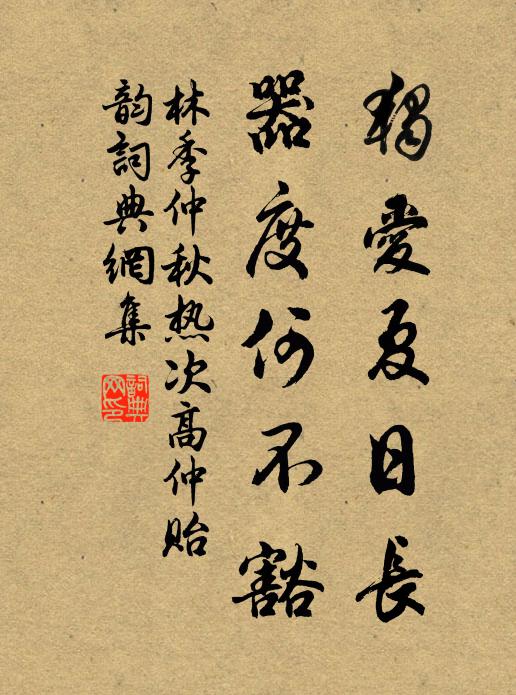 獨愛夏日長
器度何不豁
林季仲秋热次高仲貽
韵詞典網集
詞典网印